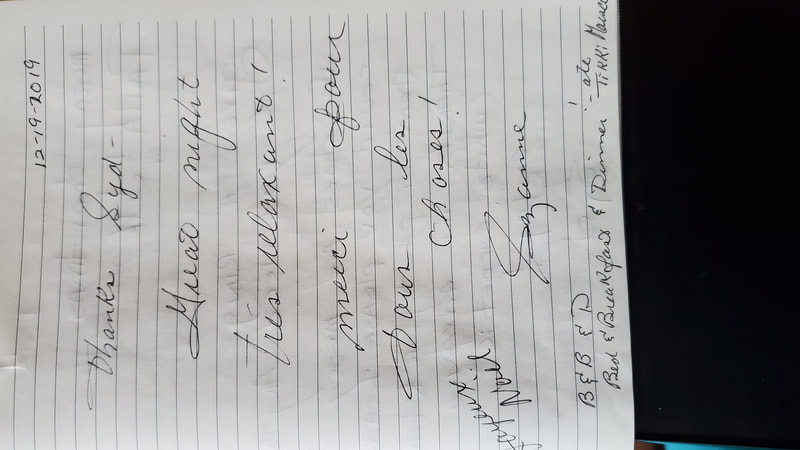 12-19-2019
Thanks Syd-
Great night
très relaxant!
merci pour
tous les
choses!
Joyeux
Noël
Suzanne
B & B & D
Bed & Breakfast & Dinner! - ate
Tikki